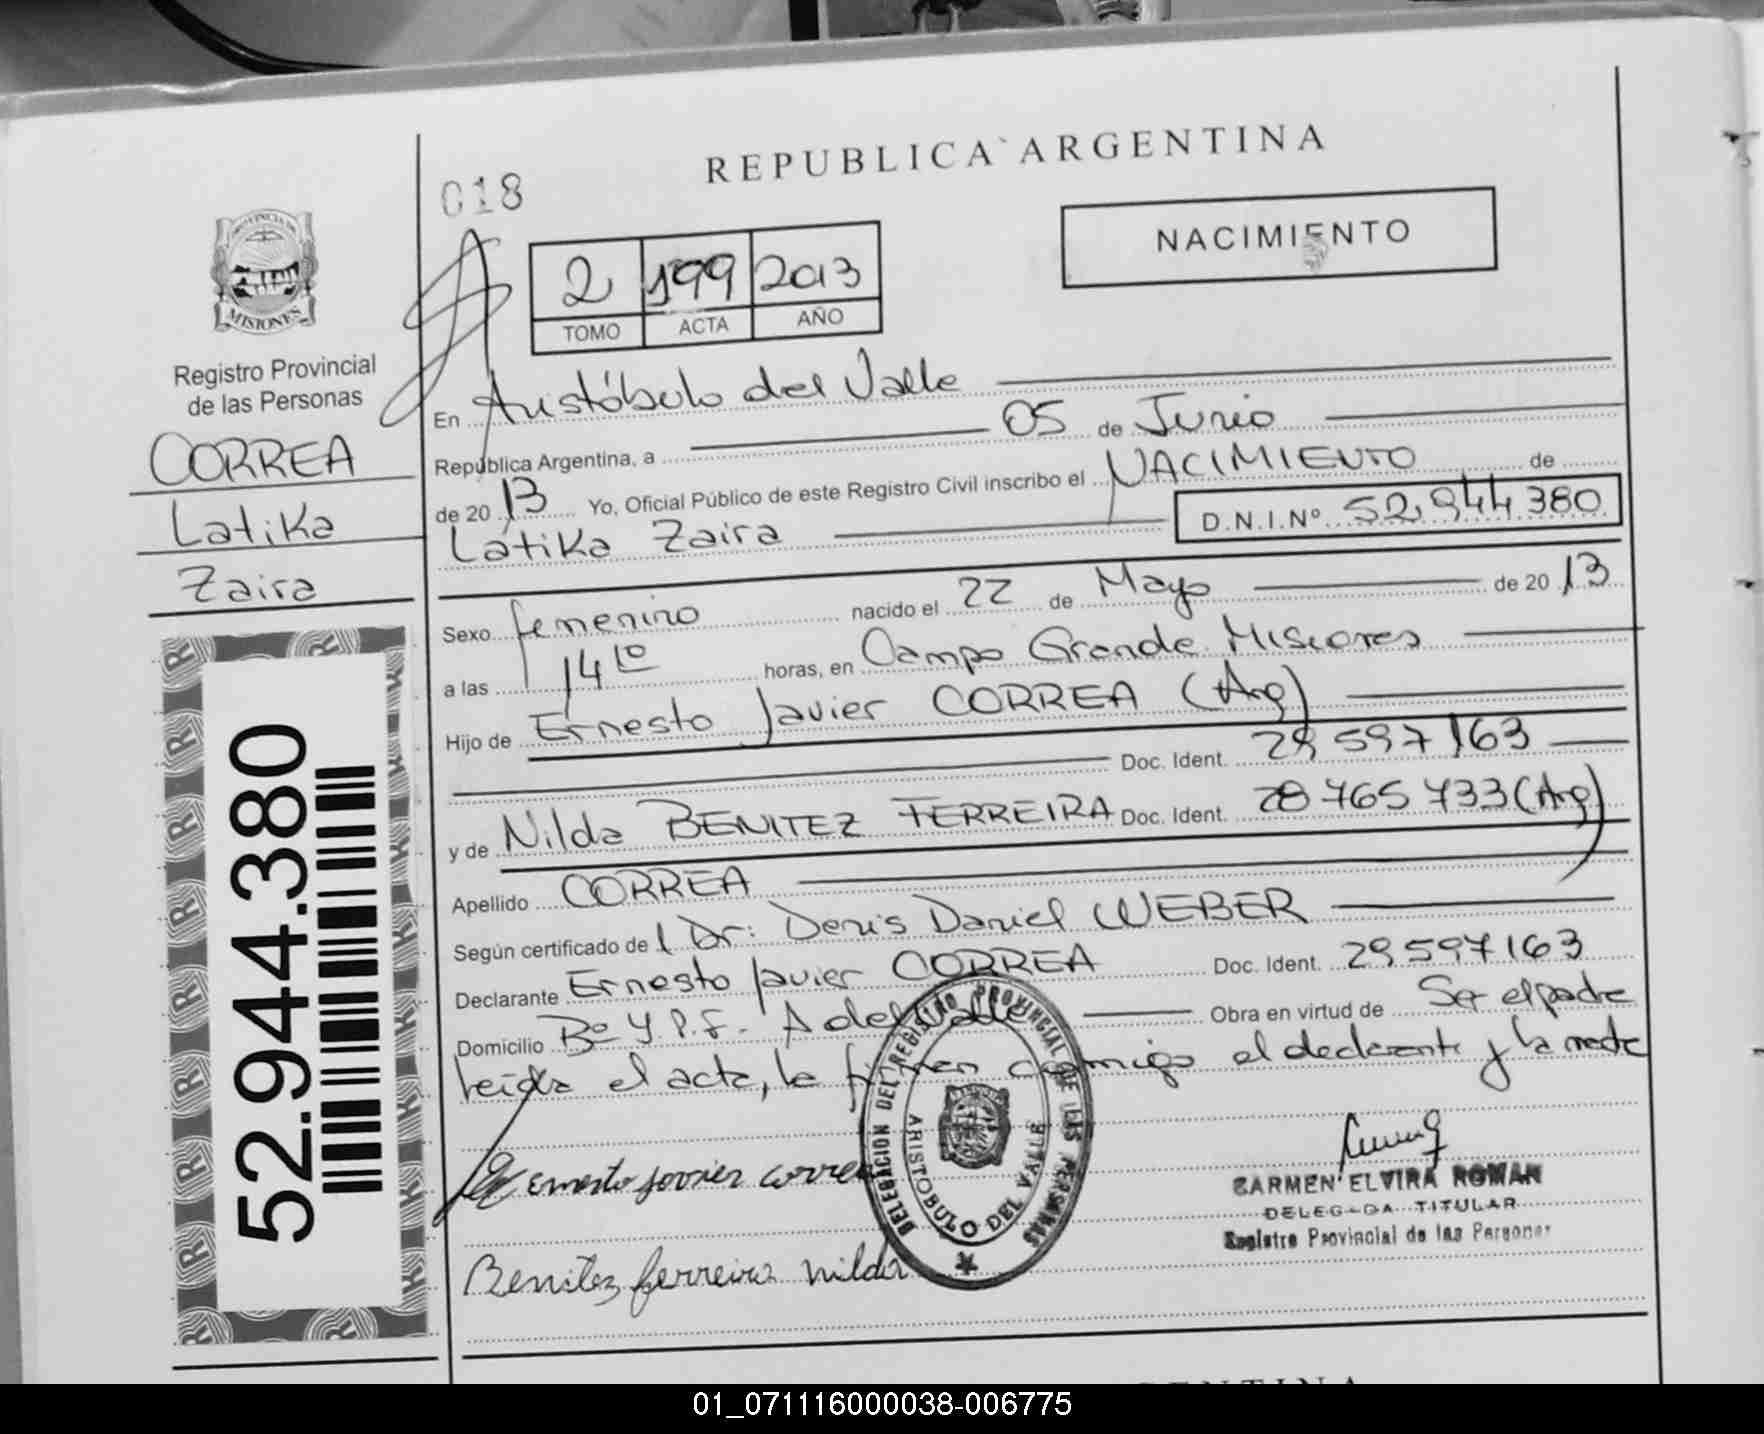 REPUBLICA ARGENTINA
018
NACIMIENTO
2 199 2013
TOMO ACTA AÑO
PROVINCIA DE
MISIONES
Registro Provincial
de las Personas
CORREA
Latika
Zaira
52.944.380
En Aristóbulo del Valle
República Argentina, a 05 de Junio
de 20 13 Yo, Oficial Público de este Registro Civil inscribo el NACIMIENTO de
Latika Zaira D.N.I.Nº 52.944.380
Sexo femenino nacido el 22 de Mayo de 20 13
a las 14 10 horas, en Campo Grande Misiones
Hijo de Ernesto Javier CORREA (Arg)
Doc. Ident. 29 597 163
y de Nilda BENITEZ FERREIRA Doc. Ident. 28 765 733 (Arg)
Apellido CORREA
Según certificado de l Dr: Denis Daniel WEBER
Declarante Ernesto Javier CORREA Doc. Ident. 29 597 163
Domicilio Bº Y.P.F. A del Valle Obra en virtud de Ser el padre
leída el acta, la firman conmigo el declarante y la madre
Ernesto Javier Correa
Benitez ferreira nilda
DELEGACION DEL REGISTRO PROVINCIAL DE LAS PERSONAS
ARISTOBULO DEL VALLE
CARMEN ELVIRA ROMAN
DELEGADA TITULAR
Registro Provincial de las Personas
01_071116000038-006775